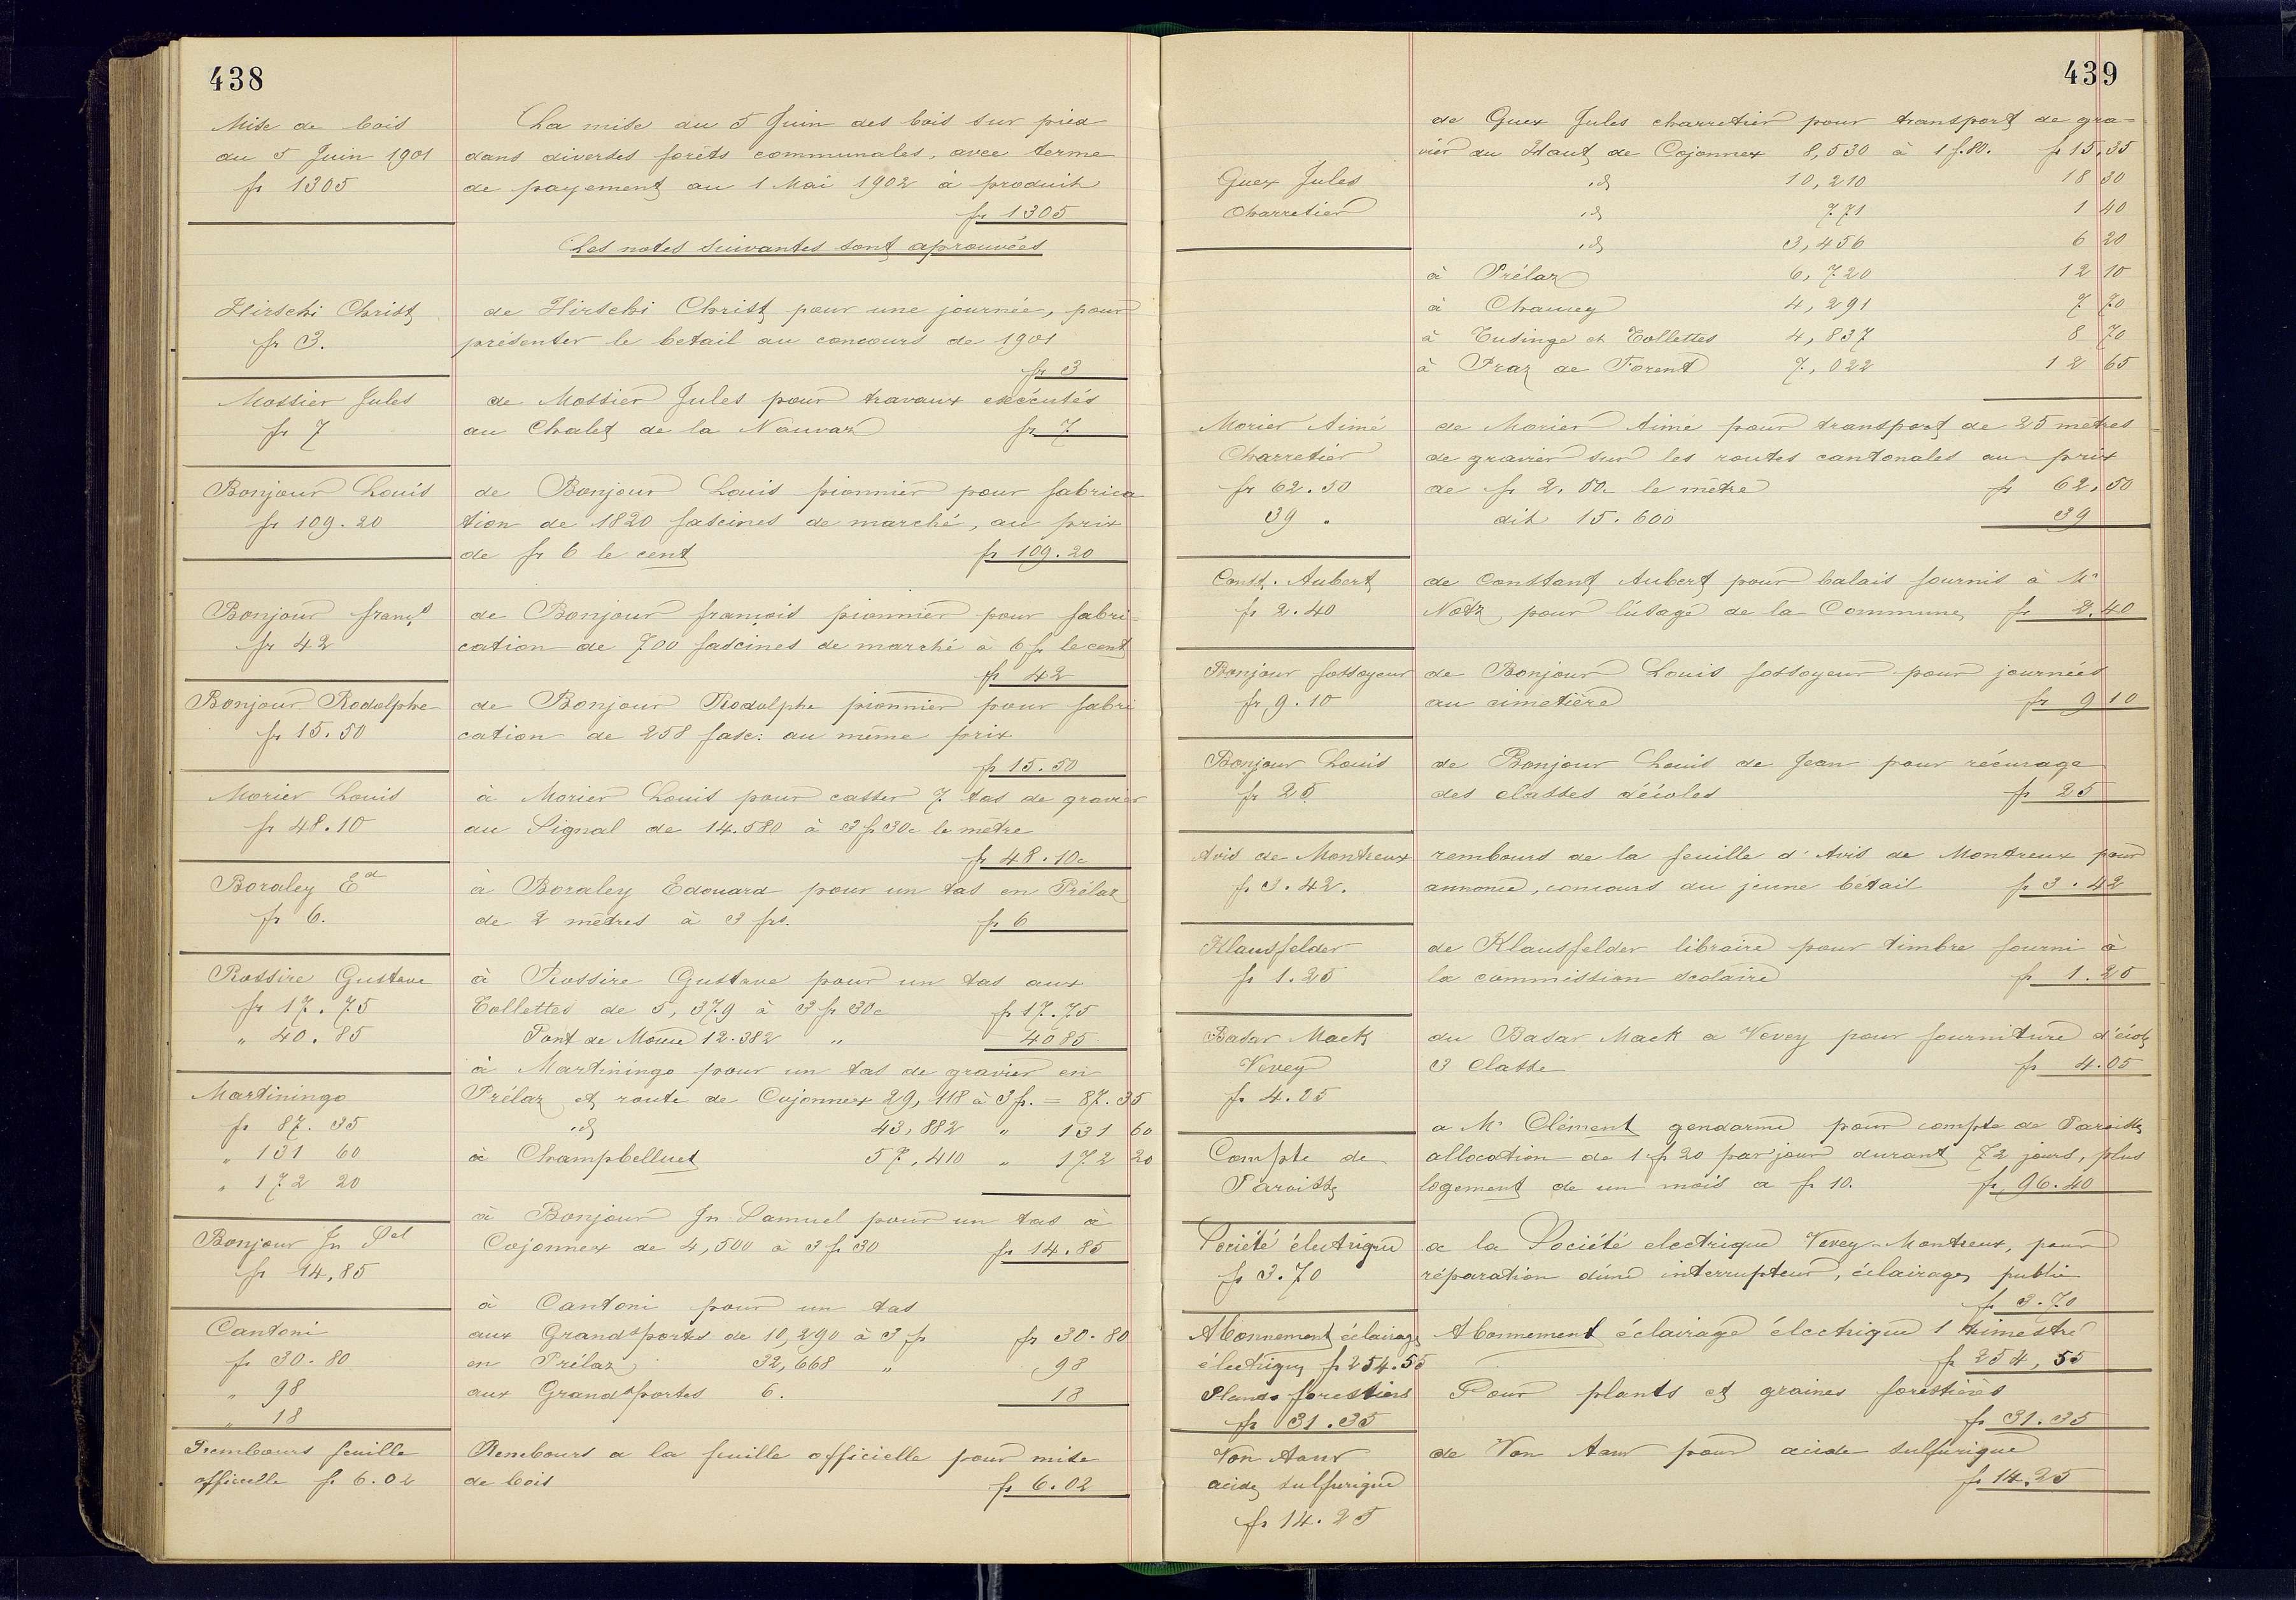 438
Mise de bois
du 5 Juin 1901
fr 1305
La mise du 5 Juin des bois sur pied
dans diverses forêts communales, avec terme
de payement au 1 Mai 1902 a produit
fr 1305
Les notes suivantes sont aprouvées
Hirschi Christ
fr 3.
de Hirschi Christ pour une journée, pour
présenter le betail au concours de 1901
fr 3
Mossier Jules
fr 7
de Mossier Jules pour travaux exécutés
au Chalet de la Neuvaz fr 7
Bonjour Louis
fr 109.20
de Bonjour Louis pionnier pour fabrica
tion de 1820 fascines de marché, au prix
de fr 6 le cent fr 109.20
Bonjour franç.s
fr 42
de Bonjour françois pionnier pour fabri-
cation de 700 fascines de marché à 6 fr le cent
fr 42
Bonjour Rodolphe
fr 15.50
de Bonjour Rodolphe pionnier pour fabri
cation de 258 fasc: au même prix
fr 15.50
Morier Louis
fr 48.10
à Morier Louis pour casser 7 tas de gravier
au Signal de 14.580 à 3 fr 30c le mètre
fr 48.10c
Boraley Ed
fr 6.
à Boraley Edouard pour un tas en Prélaz
de 2 mètres à 3 frs. fr 6
Rossire Gustave
fr 17.75
" 40.85
à Rossire Gustave pour un tas aux
Tollettes de 5,379 à 3 fr 30c fr 17.75
Pont de 12.382 " 4085
Martiningo
fr 87.35
" 131 60
" 172 20
à Martiningo pour un tas de gravier en
Prélaz et route de Cojonnex 29,118 à 3 fr. = 87.35
id 43,882 " 131 60
à Champbelluet 57,410 " 172 20
Bonjour Jn Sel
fr 14,85
à Bonjour Jn Samuel pour un tas à
Cojonnex de 4,500 à 3 fr 30 fr 14.85
Cantoni
fr 30.80
" 98
" 18
à Cantoni pour un tas
aux Grands portes de 10,290 à 3 fr fr 30.80
en Prélaz 32,668 " 98
aux Grands portes 6. 18
Rembours feuille
officielle fr 6.02
Rembours a la feuille officielle pour mise
de bois fr 6.02
439
Guex Jules
charretier
de Guex Jules charretier pour transport de gra-
vier du Haut de Cojonnex 8,530 à 1 f. 80. fr 15,35
id 10,210 18 30
id 771 1 40
id 3,456 6 20
à Prélaz 6,720 12 10
à Chamey 4,291 7 70
à Tusinge et Tollettes 4,837 8 70
à Praz de Forent 7,022 12 65
Morier Aimé
Charretier
fr 62.50
39 .
de Morier Aimé pour transport de 25 mètres
de gravier sur les routes cantonales au prix
de fr 2.50. le mètre fr 62,50
dit 15.600 39
Const. Aubert
fr 2.40
de Constant Aubert pour balais fournis à Mr
Notz pour l'usage de la Commune fr 2.40
Bonjour fossoyeur
fr 9.10
de Bonjour Louis fossoyeur pour journées
au cimetière fr 9 10
Bonjour Louis
fr 25
de Bonjour Louis de Jean pour récurage
des classes d'écoles fr 25
Avis de Montreux
fr 3.42.
rembours de la feuille d'Avis de Montreux pour
annonce, concours du jeune bétail fr 3.42
Klausfelder
fr 1.25
de Klausfelder libraire pour timbre fourni à
la commission scolaire fr 1.25
Basar Mack
Vevey
fr 4.05
du Basar Mack a Vevey pour fourniture d'école
3 classe fr 4.05
Compte de
Paroisse
a Mr Clément gendarme pour compte de Paroisse
allocation de 1 fr 20 par jour durant 72 jours, plus
logement de un mois a fr 10. fr 96.40
Société électrique
fr 3.70
a la Société electrique Vevey-Montreux, pour
réparation d'une interrupteur, éclairage public
fr 3.70
Abonnement éclairage
électrique fr 254.55
Abonnement éclairage électrique 1 trimestre
fr 254,55
Plants forestiers
fr 31.35
Pour plants et graines forestières
fr 31.35
Von Aauw
acide sulfurique
fr 14.25
de Von Aauw pour acide sulfurique
fr 14.25